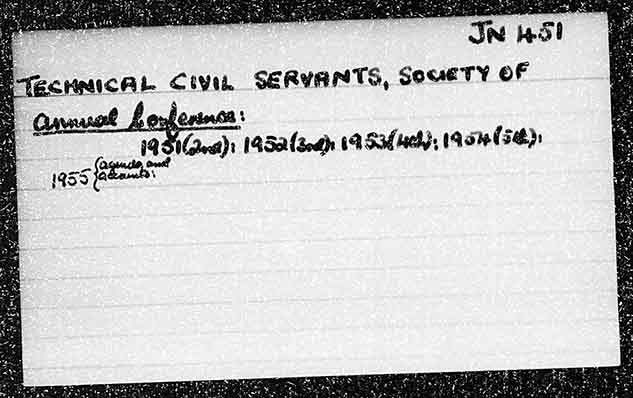 JN 451
TECHNICAL CIVIL SERVANTS, SOCIETY OF
Annual Conference:
1951(2nd); 1952(3rd); 1953(4th); 1954(5th);
1955 {agenda and
accounts;